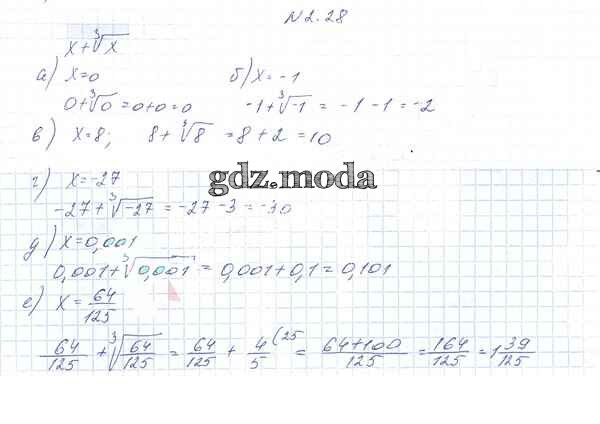 №2.28
x+∛x
а) x=0
0+∛0=0+0=0
б) x=-1
-1+∛-1 = -1-1=-2
в) x=8; 8+∛8 =8+2=10
г) x=-27
gdz.moda
-27+∛-27 = -27-3=-30
д) x=0,001
0,001+∛0,001 = 0,001+0,1=0,101
е) x= 64/125
64/125 + ∛64/125 = 64/125 + 4/5 (25 = 64+100/125 = 164/125 = 1 39/125